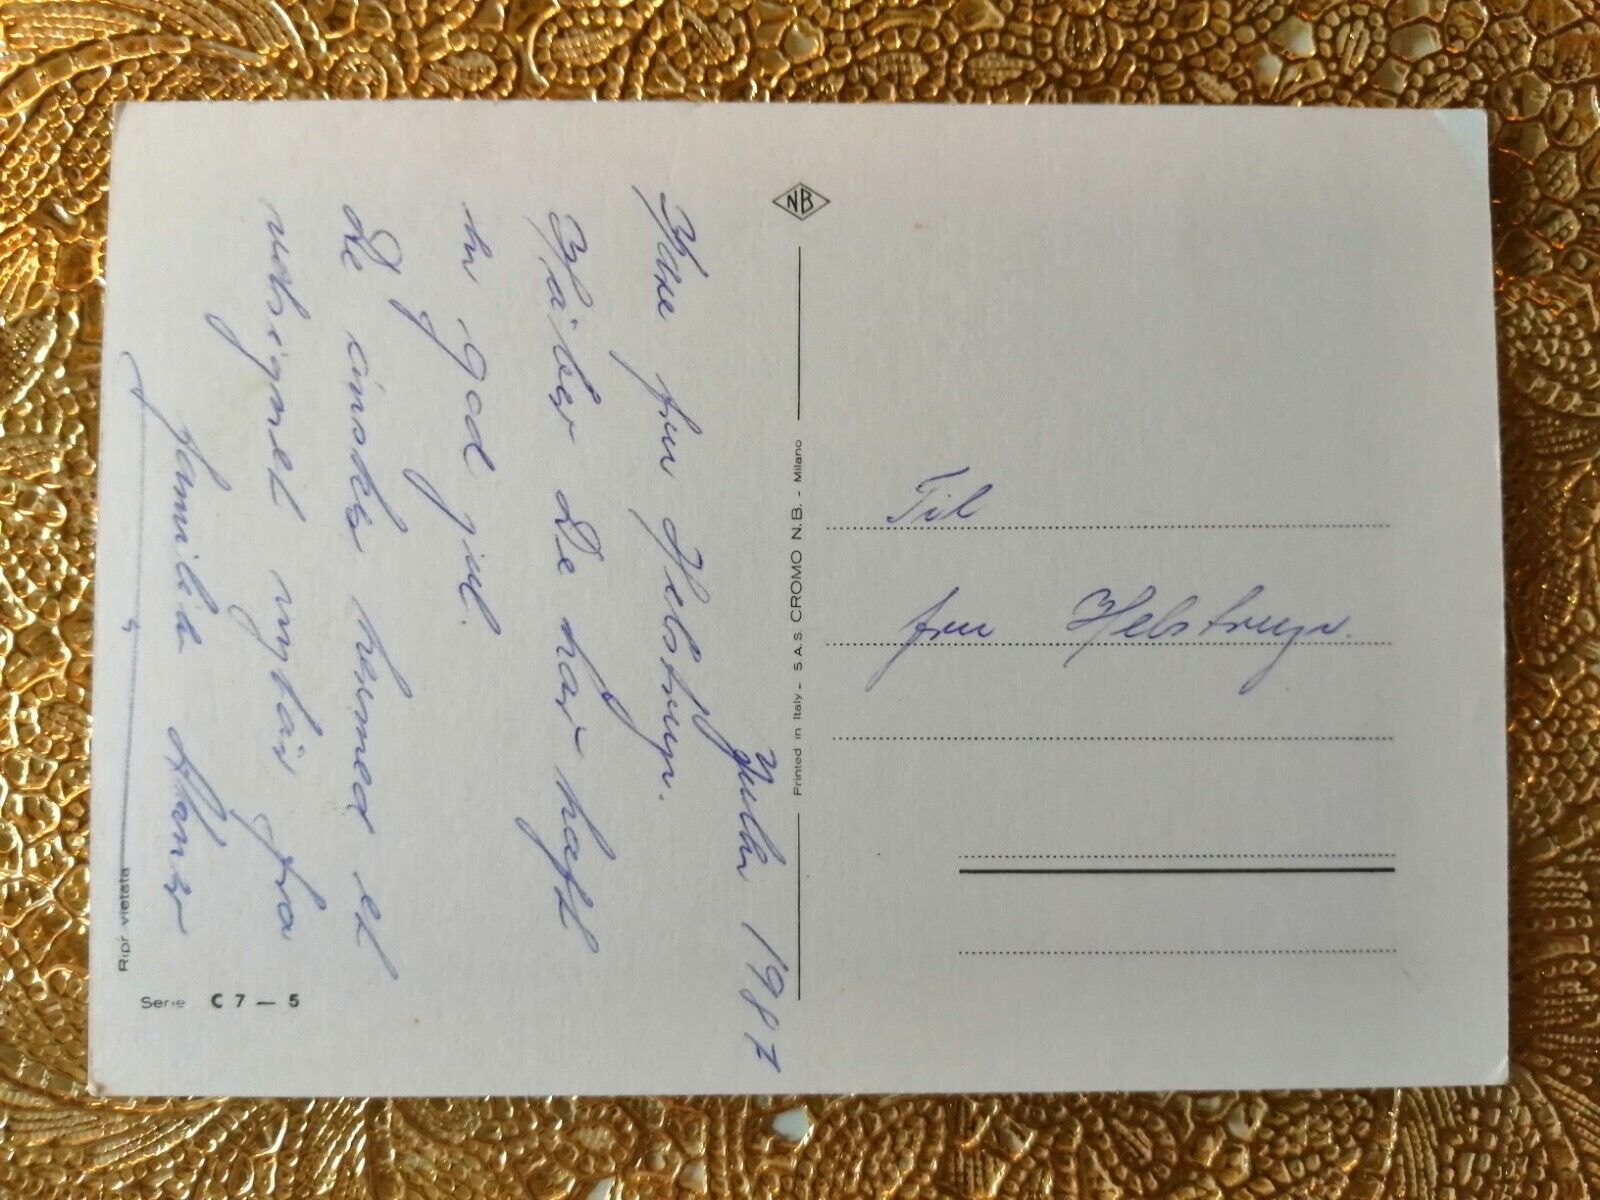 Julen 1987
Kære fru Helstrup.
Håber De har haft
en god jul.
De ønskes hermed et
velsignet nytår fra
familien
Til
fru Helstrup.
NB
Printed in Italy - S.A.S. CROMO N.B. - Milano
Ripr. vietata
Serie C 7 — 5